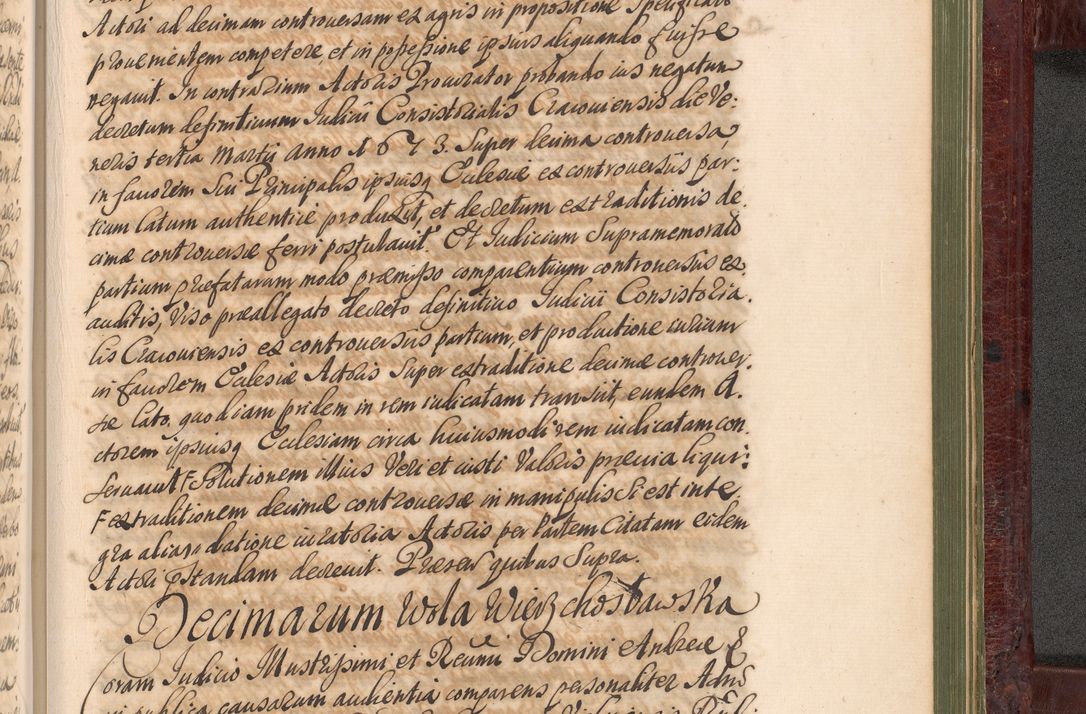 Actori ad decimam controversam ex agris in propositione specificatis
provenientem competere, et in possessione ipsius aliquando fuisse
negavit. In contrarium Actoris Procurator probando ius negatum
decretum definitivum Judicii Consistorialis Cracoviensis die Ve:
neris tertia Martii Anno 1673. Super decima controversa,
in favorem Sui Principalis ipsiusq Ecclesiæ ex controversiis par:
tium latum authentice produxit, et decretum extraditionis de.
cimæ controversæ ferri postulavit. Et Judicium Supramemorato
partium præfatarum modo præmisso comparentium controversiis ex.
auditis, viso præallegato decreto definitivo Judicii Consistoria.
lis Cracoviensis ex controversiis partium, et productione iurium
in favorem Ecclesiæ Actoris Super extraditione decimæ controver
sæ lato, quod iam pridem in rem iudicatam transiit, eundem A.
ctorem ipsiusq Ecclesiam circa huiusmodi rem iudicatam con.
servavit F Solutionem illius Veri et iusti Valoris prævia liqui:
F extraditionem decimæ controversæ in manipulis si est inte.
gra alias datione iuratoria Actoris per Partem Citatam eidem
Actori præstandam decrevit. Præsen quibus Supra.
Decimarum Wola Wierzchosławska
Coram Judicio Illustrissimi et Reverendissimi Domini Andreæ
in publica causarum audientia comparens personaliter Adm